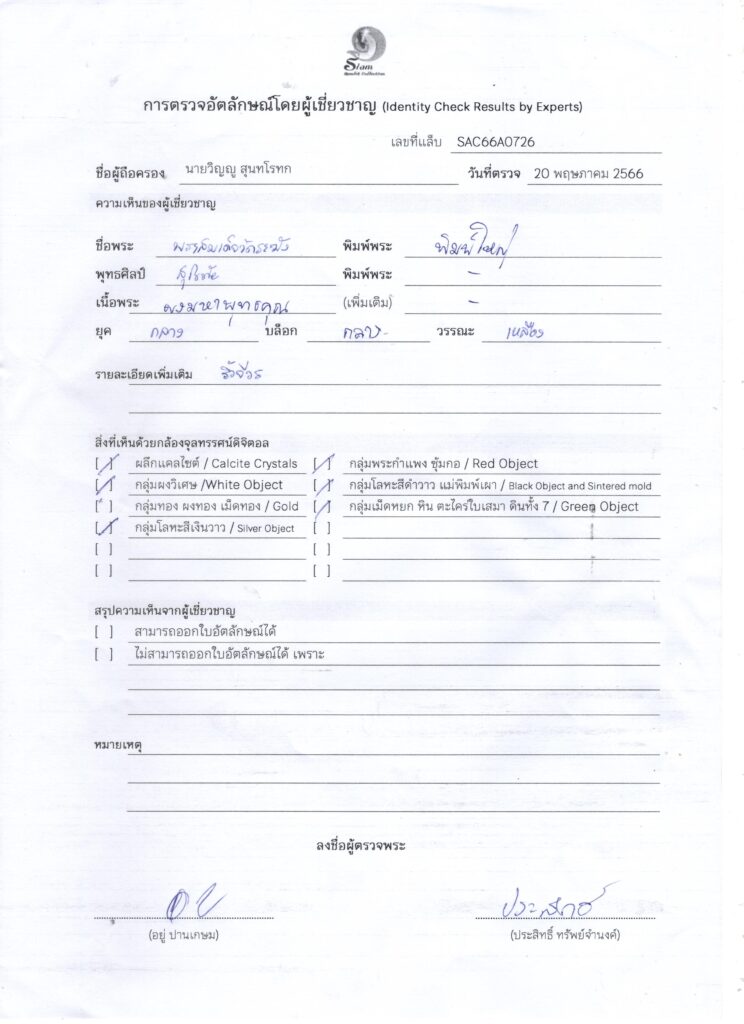 Siam
การตรวจอัตลักษณ์โดยผู้เชี่ยวชาญ (Identity Check Results by Experts)
เลขที่แล็บ SAC66A0726
ชื่อผู้ถือครอง นายวิญญู สุนทโรทก วันที่ตรวจ 20 พฤษภาคม 2566
ความเห็นของผู้เชี่ยวชาญ
ชื่อพระ พระสมเด็จวัดระฆัง พิมพ์พระ พิมพ์ใหญ่
พุทธศิลป์ สุโขทัย พิมพ์พระ -
เนื้อพระ ผงมหาพุทธคุณ (เพิ่มเติม) -
ยุค กลาง บล็อก กลาง วรรณะ เหลือง
รายละเอียดเพิ่มเติม ริ้วจีวร
สิ่งที่เห็นด้วยกล้องจุลทรรศน์ดิจิตอล
[/] ผลึกแคลไซต์ / Calcite Crystals [/] กลุ่มพระกำแพง ซุ้มกอ / Red Object
[/] กลุ่มผงวิเศษ /White Object [/] กลุ่มโลหะสีดำวาว แม่พิมพ์เผา / Black Object and Sintered mold
[ ] กลุ่มทอง ผงทอง เม็ดทอง / Gold [/] กลุ่มเม็ดหยก หิน ตะไคร่ใบเสมา ดินทั้ง 7 / Green Object
[/] กลุ่มโลหะสีเงินวาว / Silver Object [ ]
[ ] [ ]
[ ] [ ]
สรุปความเห็นจากผู้เชี่ยวชาญ
[ ] สามารถออกใบอัตลักษณ์ได้
[ ] ไม่สามารถออกใบอัตลักษณ์ได้ เพราะ
หมายเหตุ
ลงชื่อผู้ตรวจพระ
ประสิทธิ์
(อยู่ ปานเกษม) (ประสิทธิ์ ทรัพย์จำนงค์)